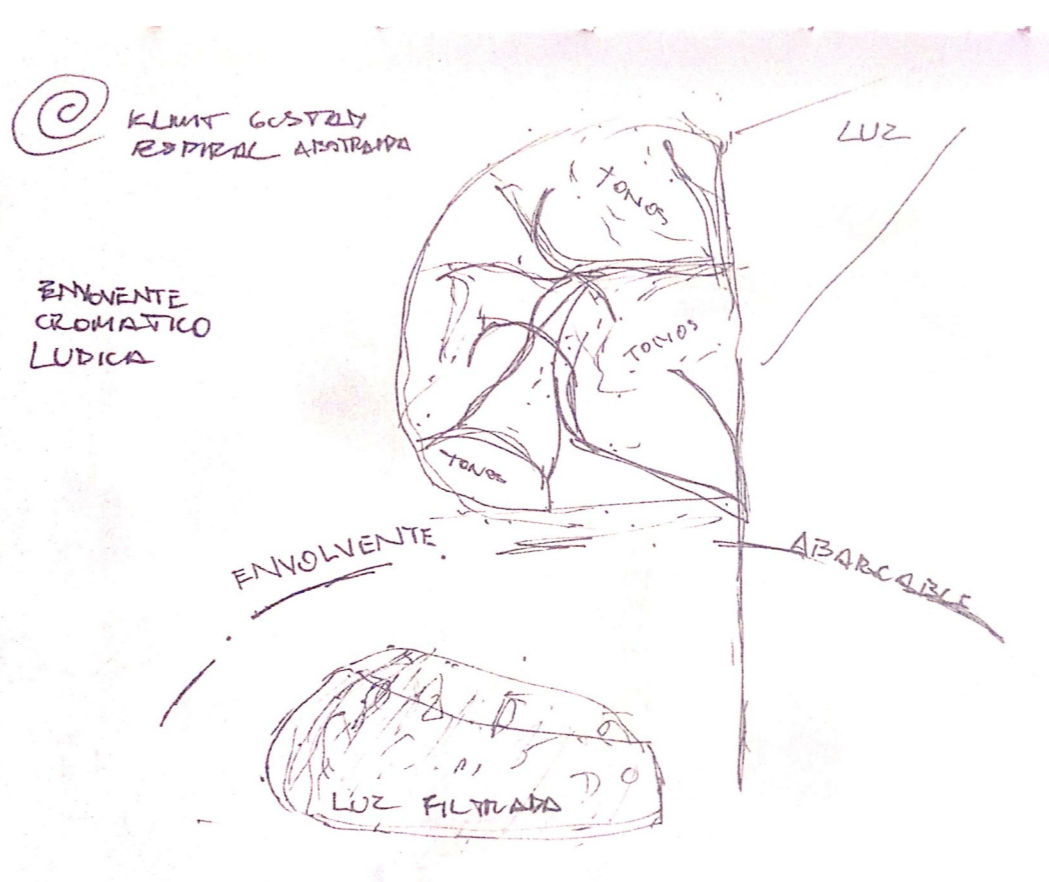 KLIMT GUSTAV
ESPIRAL ABSTRAIDA
LUZ
TONOS
ENVOVENTE
CROMATICO
LUDICA
TONOS
TONOS
ENVOLVENTE
ABARCABLE
LUZ FILTRADA